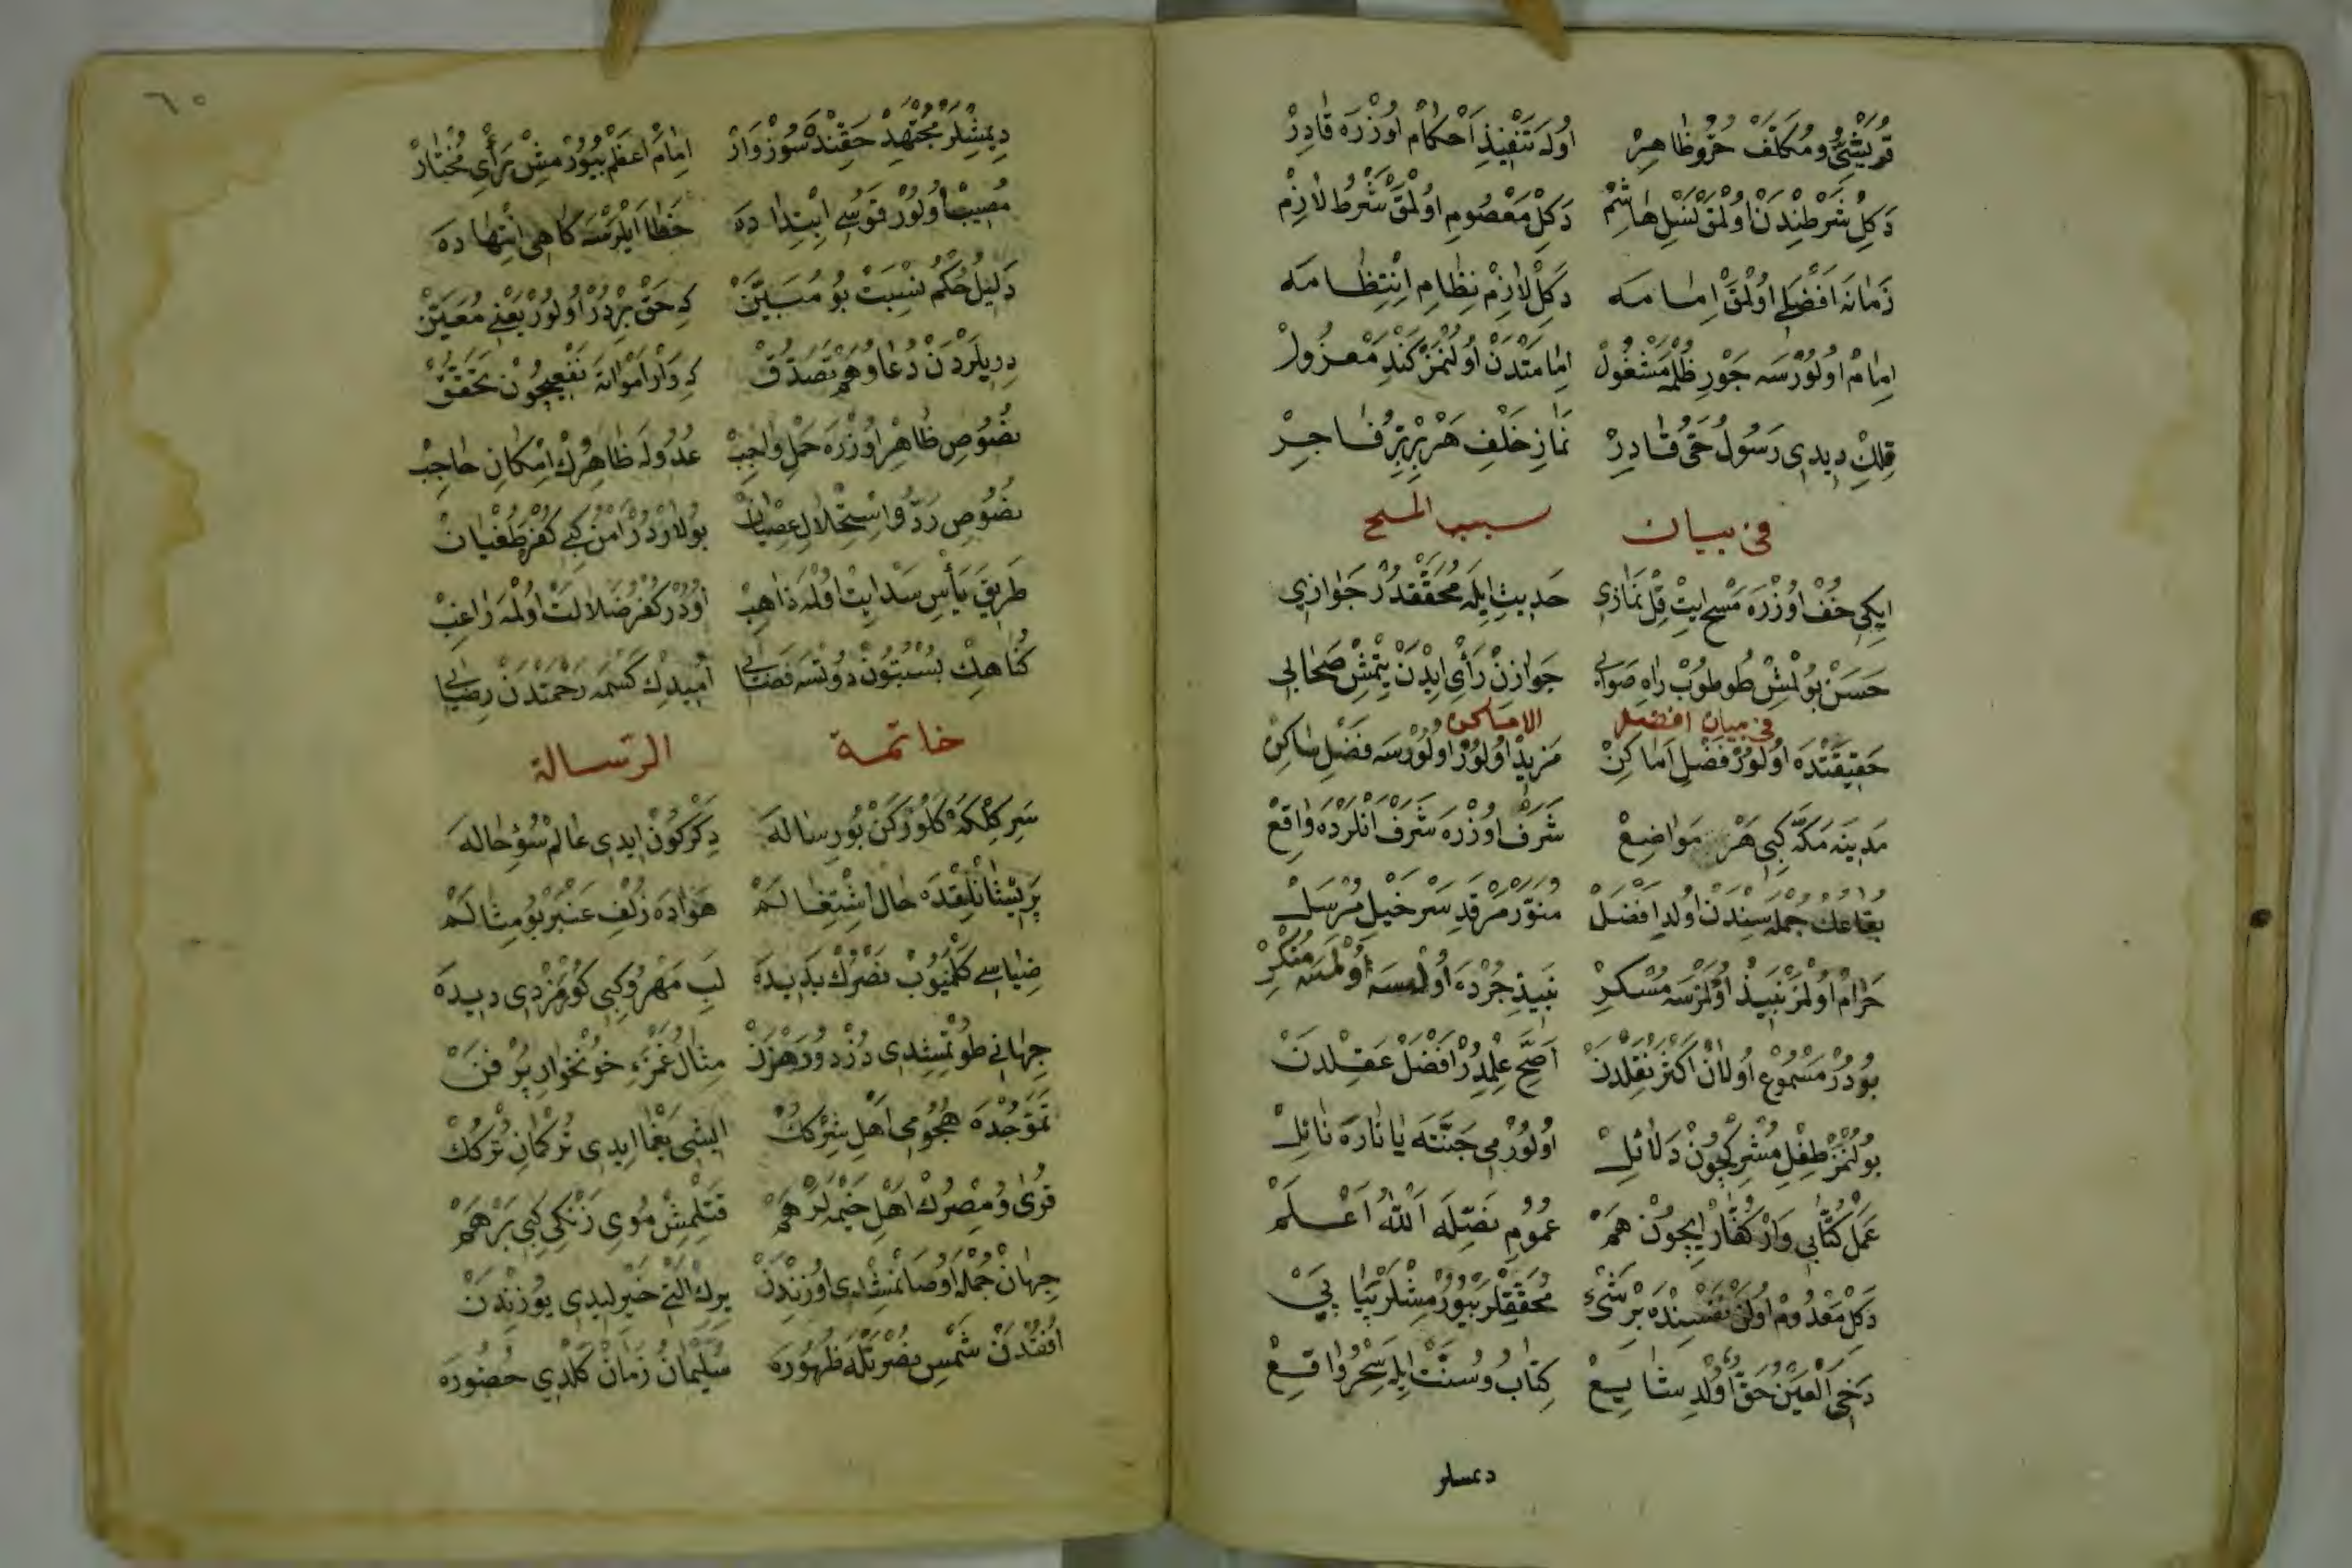 قُرَيْشِيُّ و مُكَلَّفْ حُرُّ و ظَاهِرْ اُولَه تَنْفِيذِ اَحْكَام اُوزْرَه قَادِرْ
دَكِلْ شَرْطِنْدَنْ اُولْمَقْ نَسْلِ هَاشِمْ دَكِلْ مَعْصُومِ اولْمَقْ شَرْطُ لَازِمْ
زَمَانَه اَفْضَلِى اولْمَقْ اِمَامَه دَكِلْ لَازِمْ نِظَامِ اِنْتِظَامَه
اِمَامْ اُولُورْسَه جَوْرِ ظُلْمَه مَشْغُولْ اِمَامَتْدَنْ اُولُنْمَزْ كَنْدِ مَعْزُولْ
قِلِكْ دِيدِى رَسُولُ حَىُّ قَادِرْ نَمَازِ خَلْفِ هَرْ بِرُّ فَاجِرْ
فى بيان سبب المسح
اِيكِى خُفْ اوُزْرَه مَسْح اِيتْ قِلْ نَمَازِى حَدِيثِ اِيلَه مُحَقَّقْدُرْ جَوَازِى
حَسَنْ بُولْمِشْ طُوطُوبْ رَاهِ صَوَابِى جَوَازِنْ رَأْىِ ايدَنْ يِتْمِشْ صَحَابِى
فى بيان افضل الاماكن
حَقِيقَتْدَه اُولُورْ فَضْلِ اَمَاكِنْ مَزِيدْ اُولُورْ اولُورْسَه فَضْلِ سَاكِنْ
مَدِينَه مَكَّه كِبِى هَرْ مَوَاضِعْ شَرَفْ اوزْرَه شَرَفْ اَنْلَرْدَه وَاقِعْ
بِقَاعِكْ جُمْلَه سِنْدَنْ اولدِ افْضَلْ مُنَوَّرْ مَرْقَدِ سَرْ خَيْلِ مُرْسَلْ
حَرَامْ اُولْمَزْ نَبِيذْ اُولْمَزْسَه مُسْكِرْ نَبِيذِ جُرْدَه اُولْمسَه اُولْمَسَه مُنْكِرْ
بُودُرْ مَسْمُوعِ اُولَانْ اَكْثَرْ نَقِلْدَنْ اَصَحِّ عِلْمِدُرْ اَفْضَلْ عَقِلْدَنْ
بُولُنْمَزْ طِفْلِ مُشْرِكْچُونْ دَلَائِلْ اُولُورْمِى جَنَّتَه يَا نَارَه نَائِلْ
عَمَلْ كُتَّابِى وَارْ كُفَّارْ اِيچُونْ هَمْ عُمُومِ نَصِّلَه اَللهُ اَعْلَمْ
دَكِلْ مَعْدُومْ اُولَنْ نَفْسِنْدَه بِرْ شَىْءِ مُحَقِّقْلَرْ بُيُورْمِشْلَرْ پَيَا پَىْ
دَخِى اَلْعَيْنُ حَقّ اُولْدِ شَايِعْ كِتَابُ و سُنَّتْ اِيلَه سِحْرُ وَاقِعْ
دیمشلر
٦٥
دِيمِشْلَرْ مُجْتَهِدْ حَقِنْدَه سُوزْ وَارْ اِمَامْ اَعْظَمْ بُيُورْمِشْ رَأْىِ مُخْتَارْ
مُصِيبْ اُولُورْ قَوسِى اِبْتِدَا دَه خَطَا اَيْلَرْسَه كَاهِى اِنْتِهَا دَه
دَلِيلِ حُكْمِ نِسْبَتْ بُو مُبَيَّنْ كِه حَقْ بِرْدُرْ اُولُورْ يَعْنِى مُعَيَّنْ
دِرِيلَرْدَنْ دُعَا و هَمْ تَصَدُّقْ كِه وَارْ اَمْوَاتَه نَفْعِيچُونْ تَحَقُّقْ
نُصُوصِ ظَاهِرْ اوُزْرَه حَمْلِ وَاجِبْ عُدُولَه ظَاهِرْكْ اِمْكَانِ حَاجِبْ
نُصُوصِ رَدُّ و اِسْتِحْلَالِ عِصْيَانْ بُولَاردُرْ اَمْنِ كِبِى كُفْرِ طُغْيَانْ
طَرِيقَ يَأْسِ سَدْ اِيتْ اُولْمَه ذَاهِبْ اُودُرْ كُفْرِ ضَلَالَتْ اُولْمَه رَاغِبْ
كُنَاهِكْ بُسْبُتُونْ دُوتْسَه فَضَايِى اُمِيدِكْ كَسْمَه رَحْمَتْدَنْ رِضَايِى
خاتمة الرسالة
سَرِ كِلْكَه كَلُورْكَنْ بُو رِسَالَه دِكَرْكُونْ ايدِى عَالَمْ سُؤِ حَالَه
پَرِيشَانْلِقْدَه حَالِ اشْتِغَالَمْ هَوَادَه زُلْفِ عَنْبَرْ بُو مِثَالَمْ
ضِيَاسِى كَلْمَيُوبْ نَصْرُكْ بَدِيدَه لَبِ مَهْرُو كِبِى كُورْمَزْدِى دِيدَه
جِهَانِى طُوتْمِشِدِى دُزْد و رَهْزَنْ مِثَالِ غَمْزَهِ خُونْخَوَارِ پُرْ فَنْ
تَمَوُّجْدَه هُجُومِى اَهْلِ شِرْكِكْ ايشِى يَغْمَا اِيدِى تُرْكَمَانِ تُرْكِكْ
قُرَى و مِصْرُكْ اهْلِ خَيْمَه لَرْ هَمْ قَتِلْمِشْ مُوىِ زَنْكِى كِبِى بَرْ هَمْ
جِهَانْ جُمْلَه اوُصَانْمِشِدِى اوُزِنْدَنْ يِرِكْ التِى خَيِرْلِيدِى يُوزِنْدَنْ
اُفُقْدَنْ شَمْسِ نُصْرَتْلَه ظُهُورَه سُلَيْمَانُ زَمَانْ كَلْدِى حُضُورَه